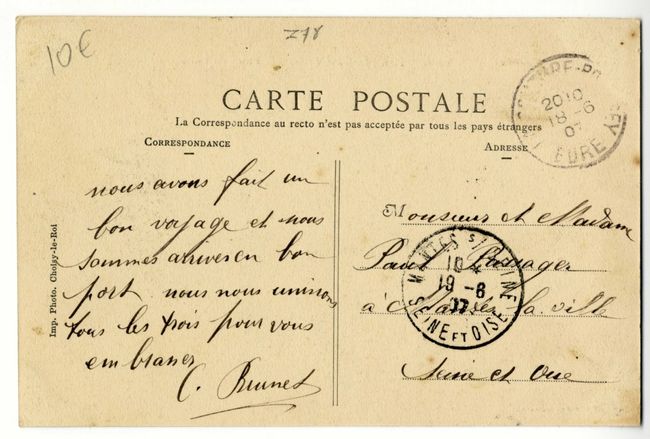 10€
278
CARTE POSTALE
La Correspondance au recto n'est pas acceptée par tous les pays étrangers
CORRESPONDANCE
ADRESSE
20 10
18 - 6
07
EURE
nous avons fait un
bon voyage et nous
sommes arrives en bon
port nous nous unissons
tous les trois pour vous
embrasser
C. Brunet
Monsieur et Madame
Paul Passager
à Mantes la ville
Seine et Oise
MANTES S/ SEINE
10
19 - 6
07
SEINE ET OISE
Imp. Photo. Choisy-le-Roi